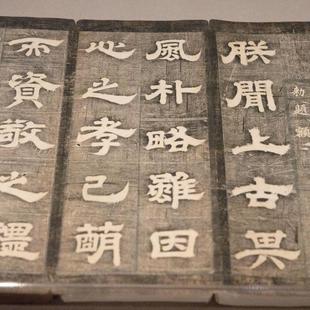 勅題額
朕聞上古其
風朴略雖因
心之孝已萌
而資敬之禮